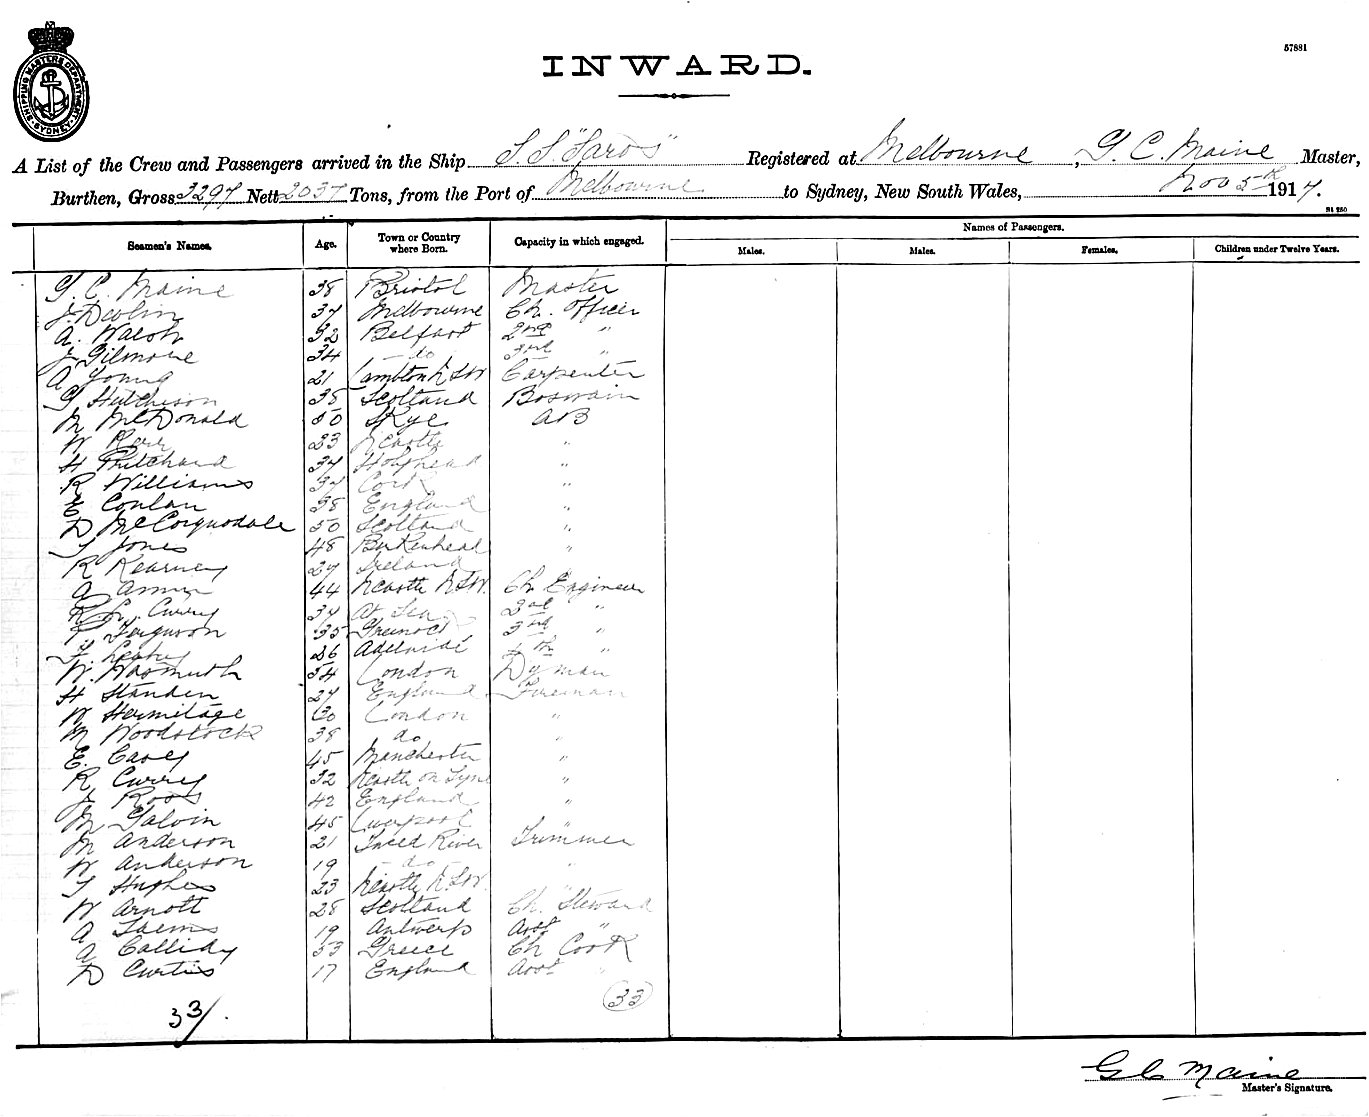 57881
SHIPPING MASTERS DEPARTMENT
SYDNEY
INWARD.
A List of the Crew and Passengers arrived in the Ship S.S. "Saros" Registered at Melbourne, G. C. Maine Master,
Burthen, Gross 3297 Nett 2037 Tons, from the Port of Melbourne to Sydney, New South Wales, Nov 5th 1917.
Seamen's Names. Age. Town or Country where Born. Capacity in which engaged. Names of Passengers.
Males. Males. Females. Children under Twelve Years.
G. C. Maine 38 Bristol Master
J. Devlin 37 Melbourne Ch. Officer
A. Walsh 32 Belfast 2nd "
J Gilmore 34 - do - 3rd "
A Young 21 Lambton NSW Carpenter
G Hutchison 38 Scotland Boswain
M McDonald 50 Skye AB
W Kerr 23 Ncastle "
H Pritchard 37 Holyhead "
R Williams 37 Cork "
E Conlan 38 England "
D McCorquodale 50 Scotland "
T Jones 48 Birkenhead "
R Kearney 27 Ireland
A 44 Ncastle NSW. Ch Engineer
R Curry 37 At Sea 2nd "
Ferguson 35 Greenock 3rd "
F. 26 Adelaide 4th "
W. Wasmuth 54 London Dyman
H Standen 27 England Fireman
W Hermitage 30 London "
M Woodstock 38 do "
E. Casey 45 Manchester "
R Currey 32 Ncastle on Tyne "
J Roos 42 England "
M Galvin 45 Liverpool "
M Anderson 21 Tweed River Trimmer
W Anderson 19 - do - "
T Hughes 23 Ncastle NSW. "
W Arnott 28 Scotland Ch. Steward
A 19 Antwerp Asst "
A Callidy 53 Greece Ch Cook
D Curtis 17 England Asst "
33/.
33
G C Maine
Master's Signature.